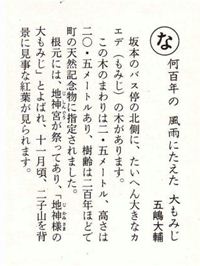 な
何百年の 風雨にたえた 大もみじ
五嶋大輔
坂本のバス停の北側に、たいへん大きなカ
エデ（もみじ）の木があります。
この木のまわりは二・五メートル、高さは
二〇・五メートルあり、樹齢は二百年ほどで
町の天然記念物に指定されました。
根元には、地神宮が祭ってあり、「地神様の
大もみじ」とよばれ 十一月頃、二子山を背
景に見事な紅葉が見られます。